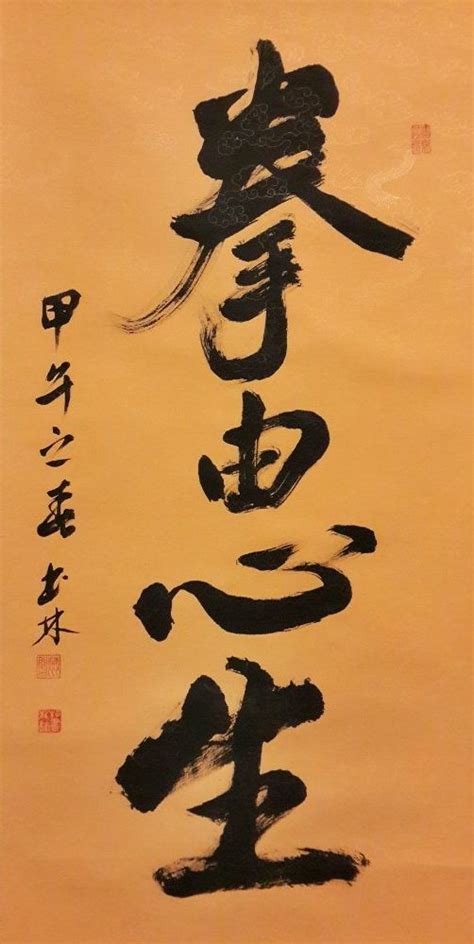 拳由心生
甲午之春 玉林